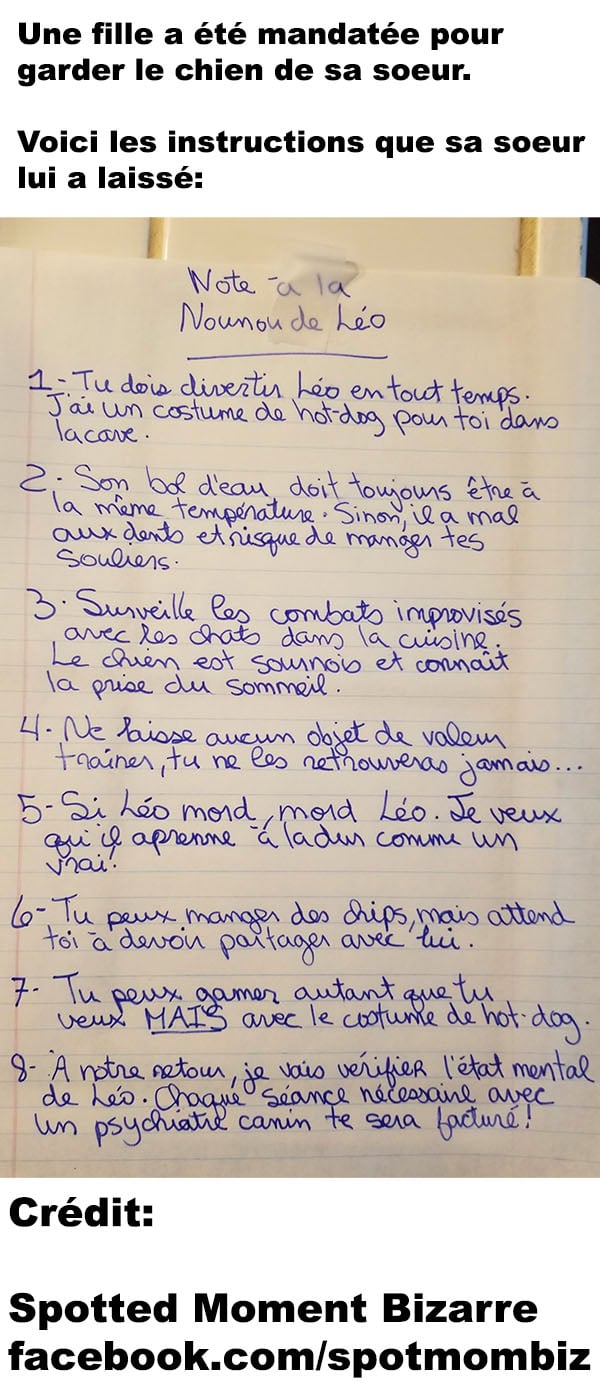 Une fille a été mandatée pour
garder le chien de sa soeur.
Voici les instructions que sa soeur
lui a laissé:
Note à la
Nounou de Léo
1- Tu dois divertir Léo en tout temps.
J'ai un costume de hot-dog pour toi dans
la cave.
2- Son bol d'eau, doit toujours être à
la même température. Sinon, il a mal
aux dents et risque de manger tes
souliers.
3- Surveille les combats improvisés
avec les chats dans la cuisine.
Le chien est sournois et connaît
la prise du sommeil.
4- Ne laisse aucun objet de valeur
traîner, tu ne les retrouveras jamais...
5- Si Léo mord, mord Léo. Je veux
qu'il aprenne à la dur comme un
vrai!
6- Tu peux manger des chips, mais attend
toi à devoir partager avec lui.
7- Tu peux gamer autant que tu
veux MAIS avec le costume de hot-dog.
8- À notre retour, je vais vérifier l'état mental
de Léo. Chaque séance nécessaire avec
un psychiatre canin te sera facturé!
Crédit:
Spotted Moment Bizarre
facebook.com/spotmombiz